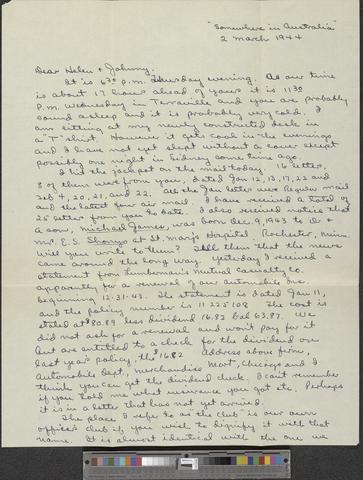 "Somewhere in Australia"
2 March 1944
Dear Helen & Johnny,
It is 6 30 p.m. Thursday evening. As our time
is about 17 hours ahead of yours it is 1130
p.m. Wednesday in and you are probably
sound asleep and it is probably very cold. I
am sitting at my newly constructed desk in
a "T" shirt. However it gets cool in the evenings
and I have not yet slept without a cover except
possibly one night in Sidney some time ago.
I hit the jackpot on the mail today. 16 letters,
8 of them were from you, dated Jan 12, 13, 17, 22 and
Feb 4, 20, 21, and 22. All the Jan letters were regular mail
and the latest four air mail. I have received a total of
25 letters from you to date. I also received notice that
a son, Michael James, was born Dec. 9, 1943 to Dr &
Mrs. E.S. at St. Mary's Hospital Rochester, Minn.
Will you write to them? Tell them that the news
came around the long way. Yesterday I received a
statement from Lumberman's Mutual Casualty Co.
apparently for a renewal of our automobile ins.
beginning 12-31-43. The statement is dated Jan 11,
and the policy number is 11 225 108. The cost is
stated at $80.89 less dividend 16.82 bal 63.87. We
did not ask for a renewal and won't pay for it
but are entitled to a check for the dividend on
last year's policy, the 16.82 address above firm,
Automobile Dept., Merchandise Mart, Chicago and I
think you can get the dividend check. I can't remember
if you told me what insurance you got etc. Perhaps
it is in a letter that has not yet arrived.
The place I refer to as the club is our own
officer's club if you wish to dignify it with that
name. It is almost identical with the one we